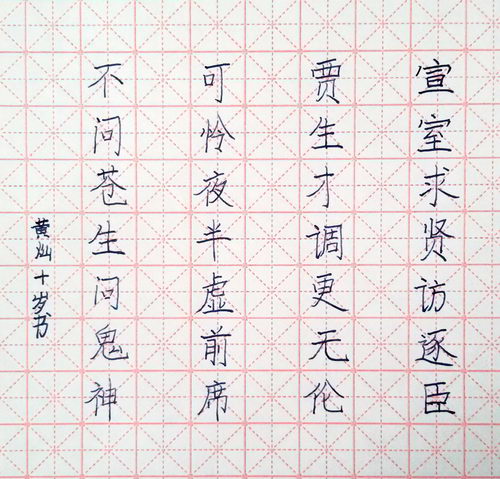 宣室求贤访逐臣
贾生才调更无伦
可怜夜半虚前席
不问苍生问鬼神
黄灿十岁书